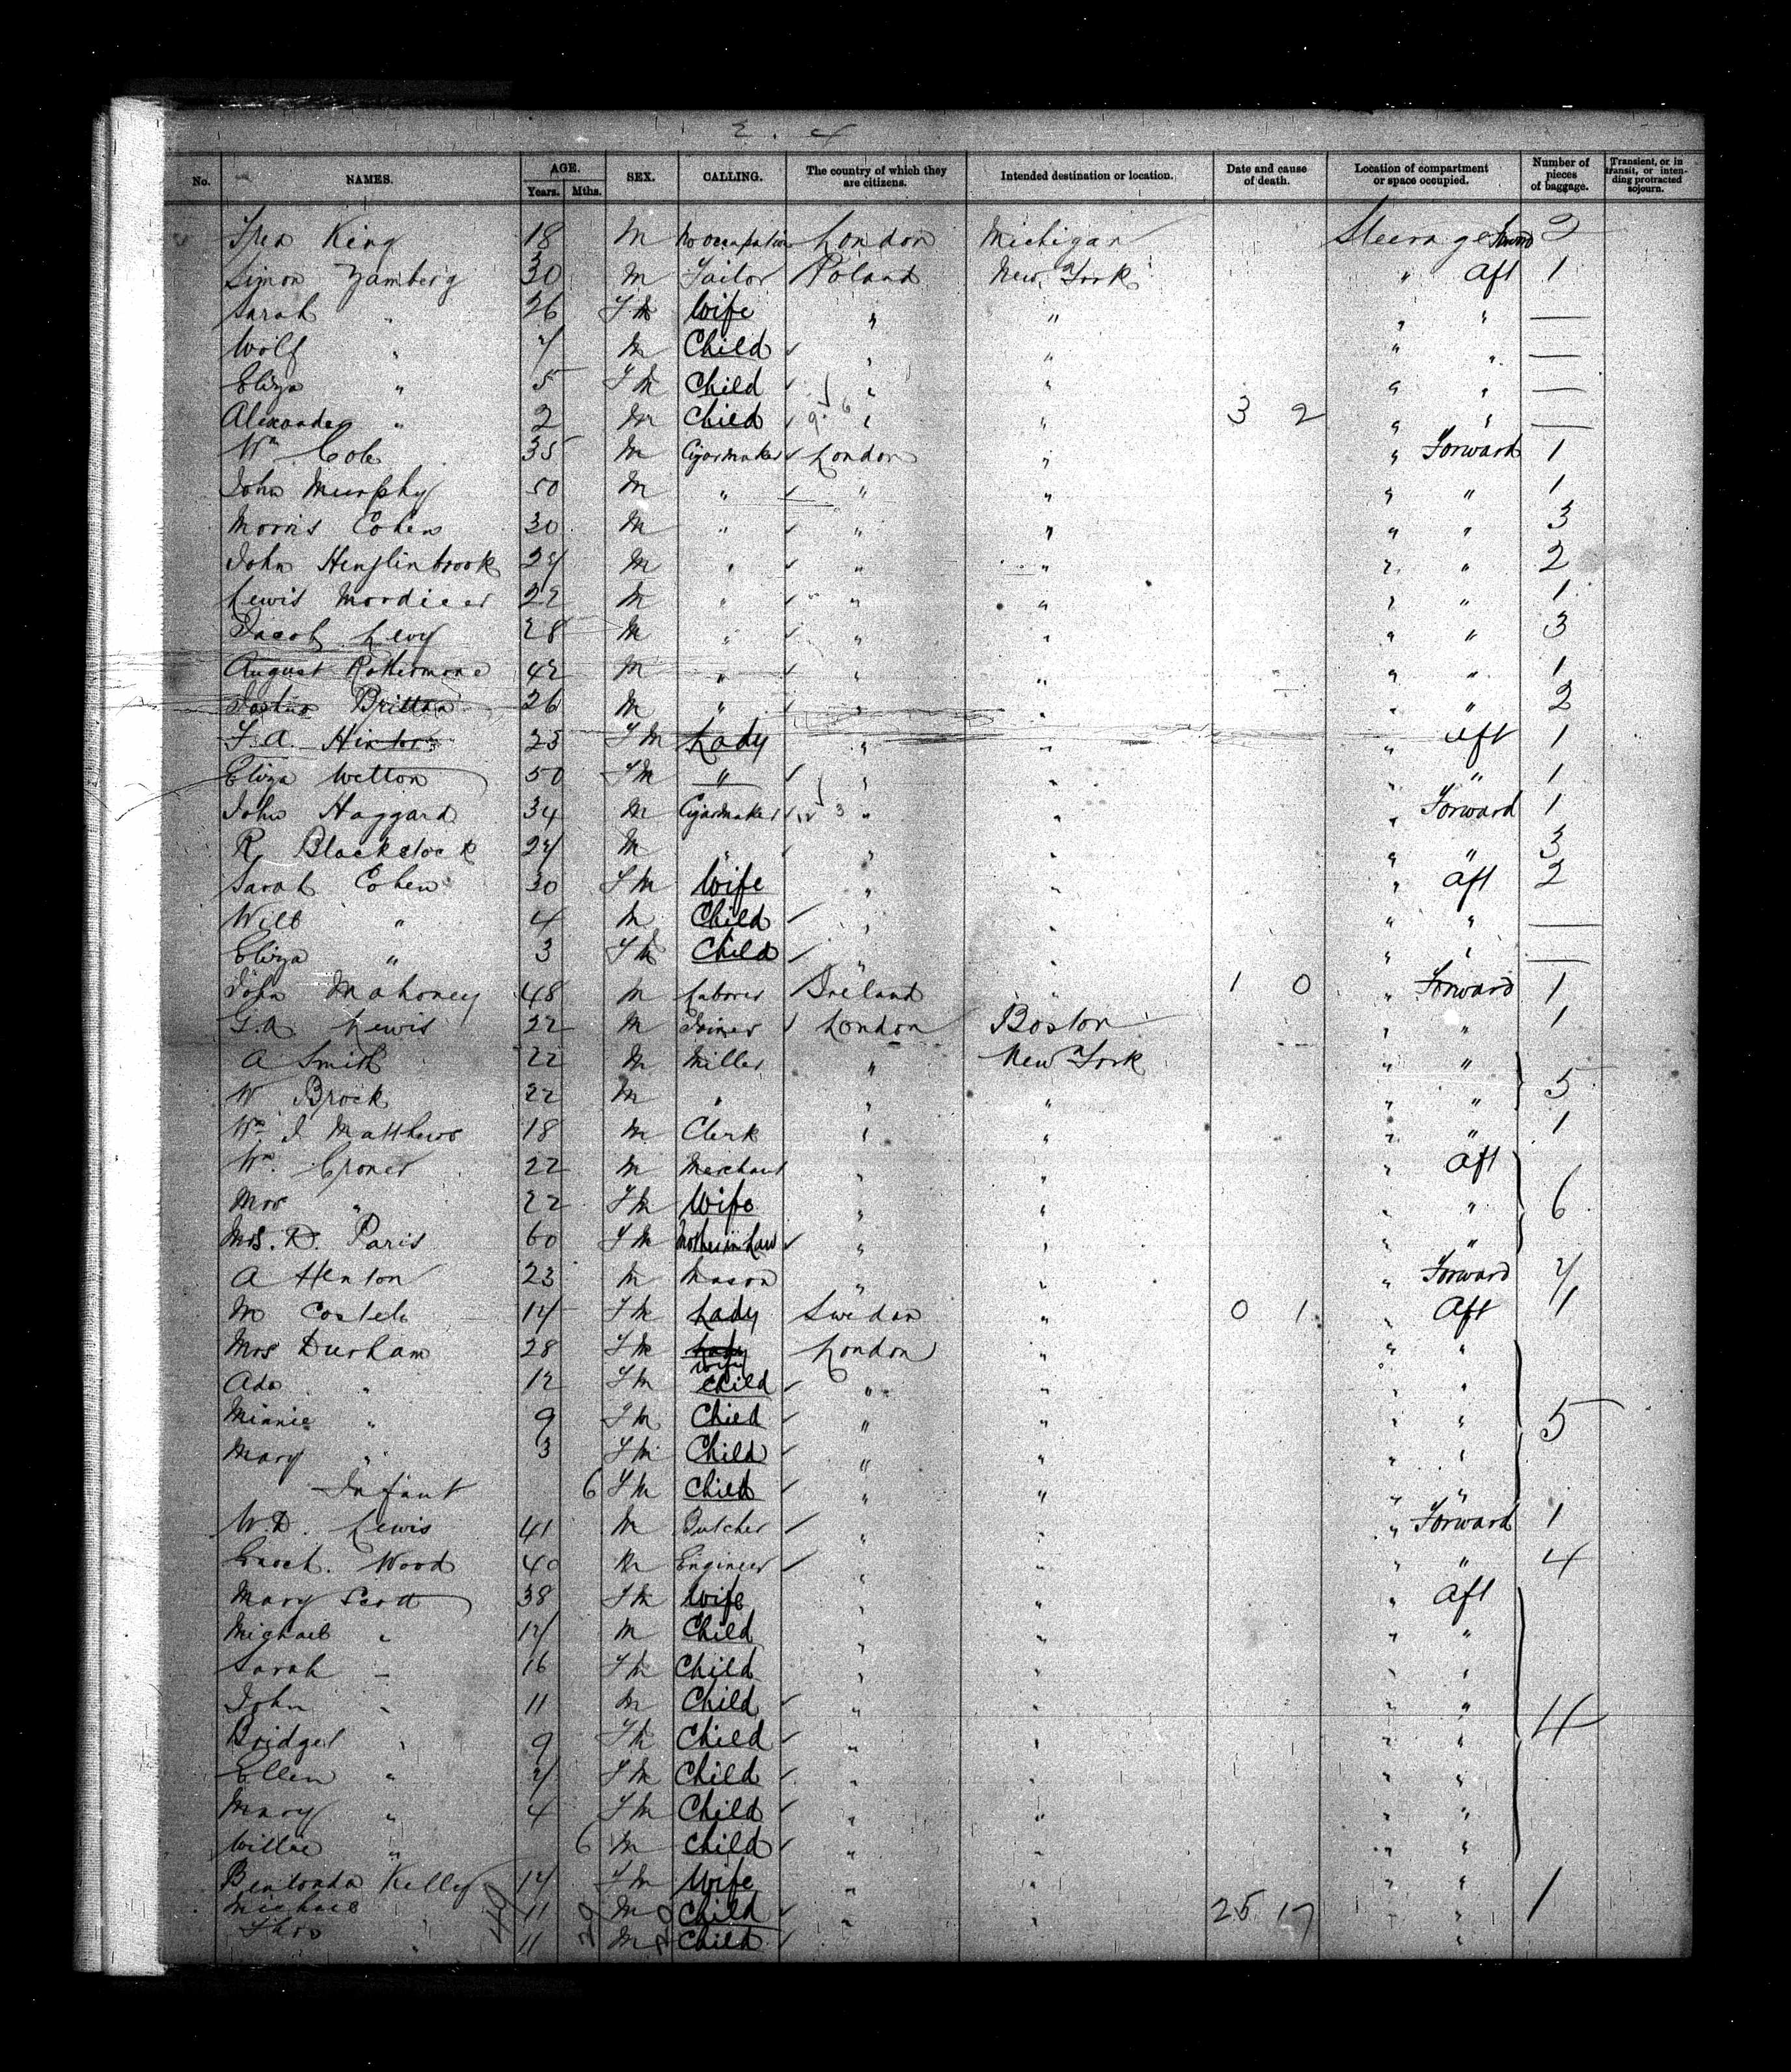 2. 4
No. NAMES. AGE. Years. Mths. SEX. CALLING. The country of which they are citizens. Intended destination or location. Date and cause of death. Location of compartment or space occupied. Number of pieces of baggage. Transient, or in transit, or intending protracted sojourn.
King 18 M No occupation London Michigan Steerage Forward 2
Simon Zamberg 30 M Tailor Poland New York " Aft 1
Sarah " 26 Fm Wife " " " " —
Wolf " 7 M Child " " " " —
Eliza " 5 Fm Child " " " " —
Alexander " 2 M Child 9 6 " " 3 2 " " —
Wm Cole 35 M Cigarmaker London " " Forward 1
John Murphy 50 M " " " " " 1
Morris Cohen 30 M " " " " " 3
John Henglinbrook 27 M " " " " " 2
Lewis 22 M " " " " " 1
Jacob Levy 28 M " " " " " 3
August 42 M " " " " " 1
Joshua Britton 26 M " " " " " 2
F. A. 23 Fm Lady " " " Aft 1
Eliza Wetton 50 Fm " " " " " 1
John Haggard 34 M Cigarmaker 3 " " " Forward 1
R. Blackstock 27 M " " " " " 3
Sarah Cohen 30 Fm Wife " " " Aft 2
Will " 4 M Child " " " " —
Eliza " 3 Fm Child " " " " —
John Mahoney 48 M Laborer Ireland " 1 0 " Forward 1
G. A. Lewis 22 M Joiner London Boston " " 1
A Smith 22 M Miller " New York " "
W Brock 22 M " " " " " 5
Wm J Matthews 18 M Clerk " " " " 1
Wm. Croner 22 M Merchant " " " Aft
Mrs " 22 Fm Wife " " " " 6
Mrs. D. Paris 60 Fm Mother in Law " " " "
A Henton 23 M Mason " " " Forward 7
M Costele 17 Fm Lady Sweden " 0 1 " Aft 1
Mrs Durham 28 Fm Lady Wife London " " "
Ada " 12 Fm Child " " " "
Minnie " 9 Fm Child " " " " 5
Mary " 3 Fm Child " " " "
Infant 6 Fm Child " " " "
W. D. Lewis 41 M Butcher " " " Forward 1
Enoch. Wood 40 M Engineer " " " " 4
Mary Scott 38 Fm Wife " " " Aft
Michael " 17 M Child " " " "
Sarah " 16 Fm Child " " " "
John " 11 M Child " " " " 4
Bridget " 9 Fm Child " " " "
Ellen " 7 Fm Child " " " "
Mary " 4 Fm Child " " " "
Willie " 6 M Child " " " "
Kelly 17 Fm Wife " " " " 1
Michael 11 M Child " " 25 17 " "
Thos " 11 M Child "